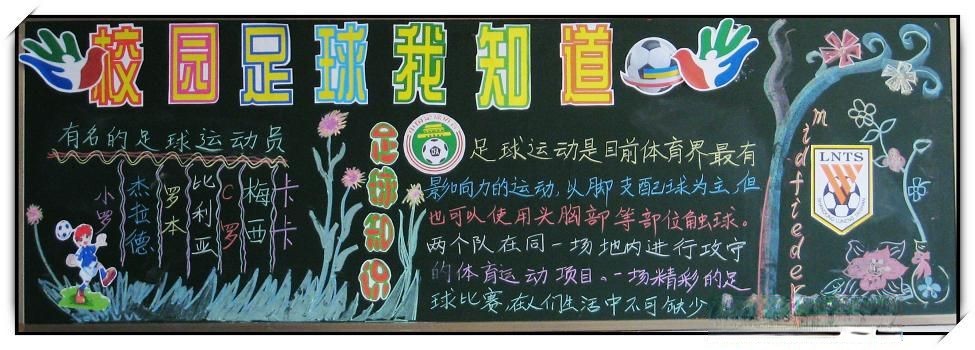 校园足球我知道
有名的足球运动员
小罗
杰拉德
罗本
比利亚
C罗
梅西
卡卡
足球知识
足球运动是目前体育界最有
影响力的运动,以脚支配球为主,但
也可以使用头胸部等部位触球。
两个队在同一场地内进行攻守
的体育运动项目。一场精彩的足
球比赛,在人们生活中不可缺少
midfieder
LNTS